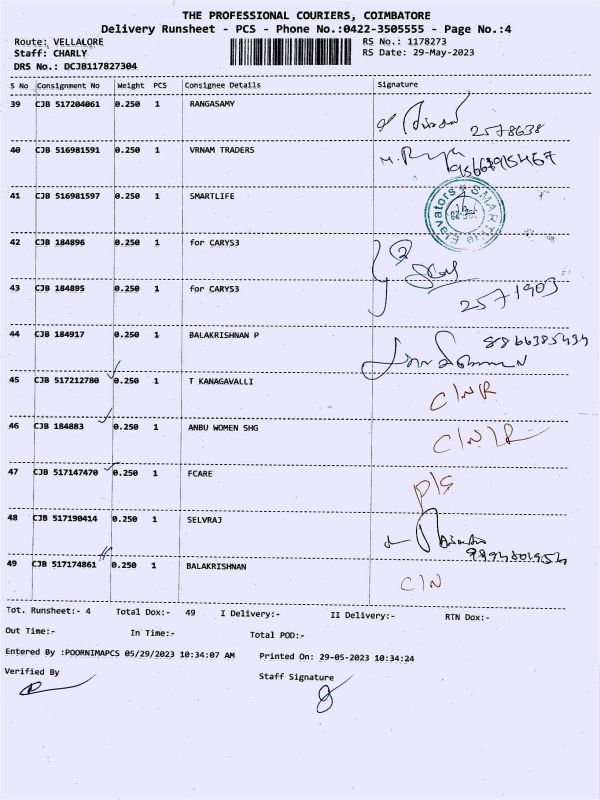 THE PROFESSIONAL COURIERS, COIMBATORE
Delivery Runsheet - PCS - Phone No.:0422-3505555 - Page No.:4
Route: VELLALORE RS No.: 1178273
Staff: CHARLY RS Date: 29-May-2023
DRS No.: DCJB117827304
S No Consignment No Weight PCS Consignee Details Signature
39 CJB 517204061 0.250 1 RANGASAMY
2578638
40 CJB 516981591 0.250 1 VRNAM TRADERS
41 CJB 516981597 0.250 1 SMARTLIFE
SMARTlife Elevators
42 CJB 184896 0.250 1 for CARYS3
43 CJB 184895 0.250 1 for CARYS3
2571903
44 CJB 184917 0.250 1 BALAKRISHNAN P
45 CJB 517212780 0.250 1 T KANAGAVALLI
C/NR
46 CJB 184883 0.250 1 ANBU WOMEN SHG
C/N/R
47 CJB 517147470 0.250 1 FCARE
P/S
48 CJB 517190414 0.250 1 SELVRAJ
49 CJB 517174861 0.250 1 BALAKRISHNAN
C/N
Tot. Runsheet:- 4 Total Dox:- 49 I Delivery:- II Delivery:- RTN Dox:-
Out Time:- In Time:- Total POD:-
Entered By :POORNIMAPCS 05/29/2023 10:34:07 AM Printed On: 29-05-2023 10:34:24
Verified By Staff Signature